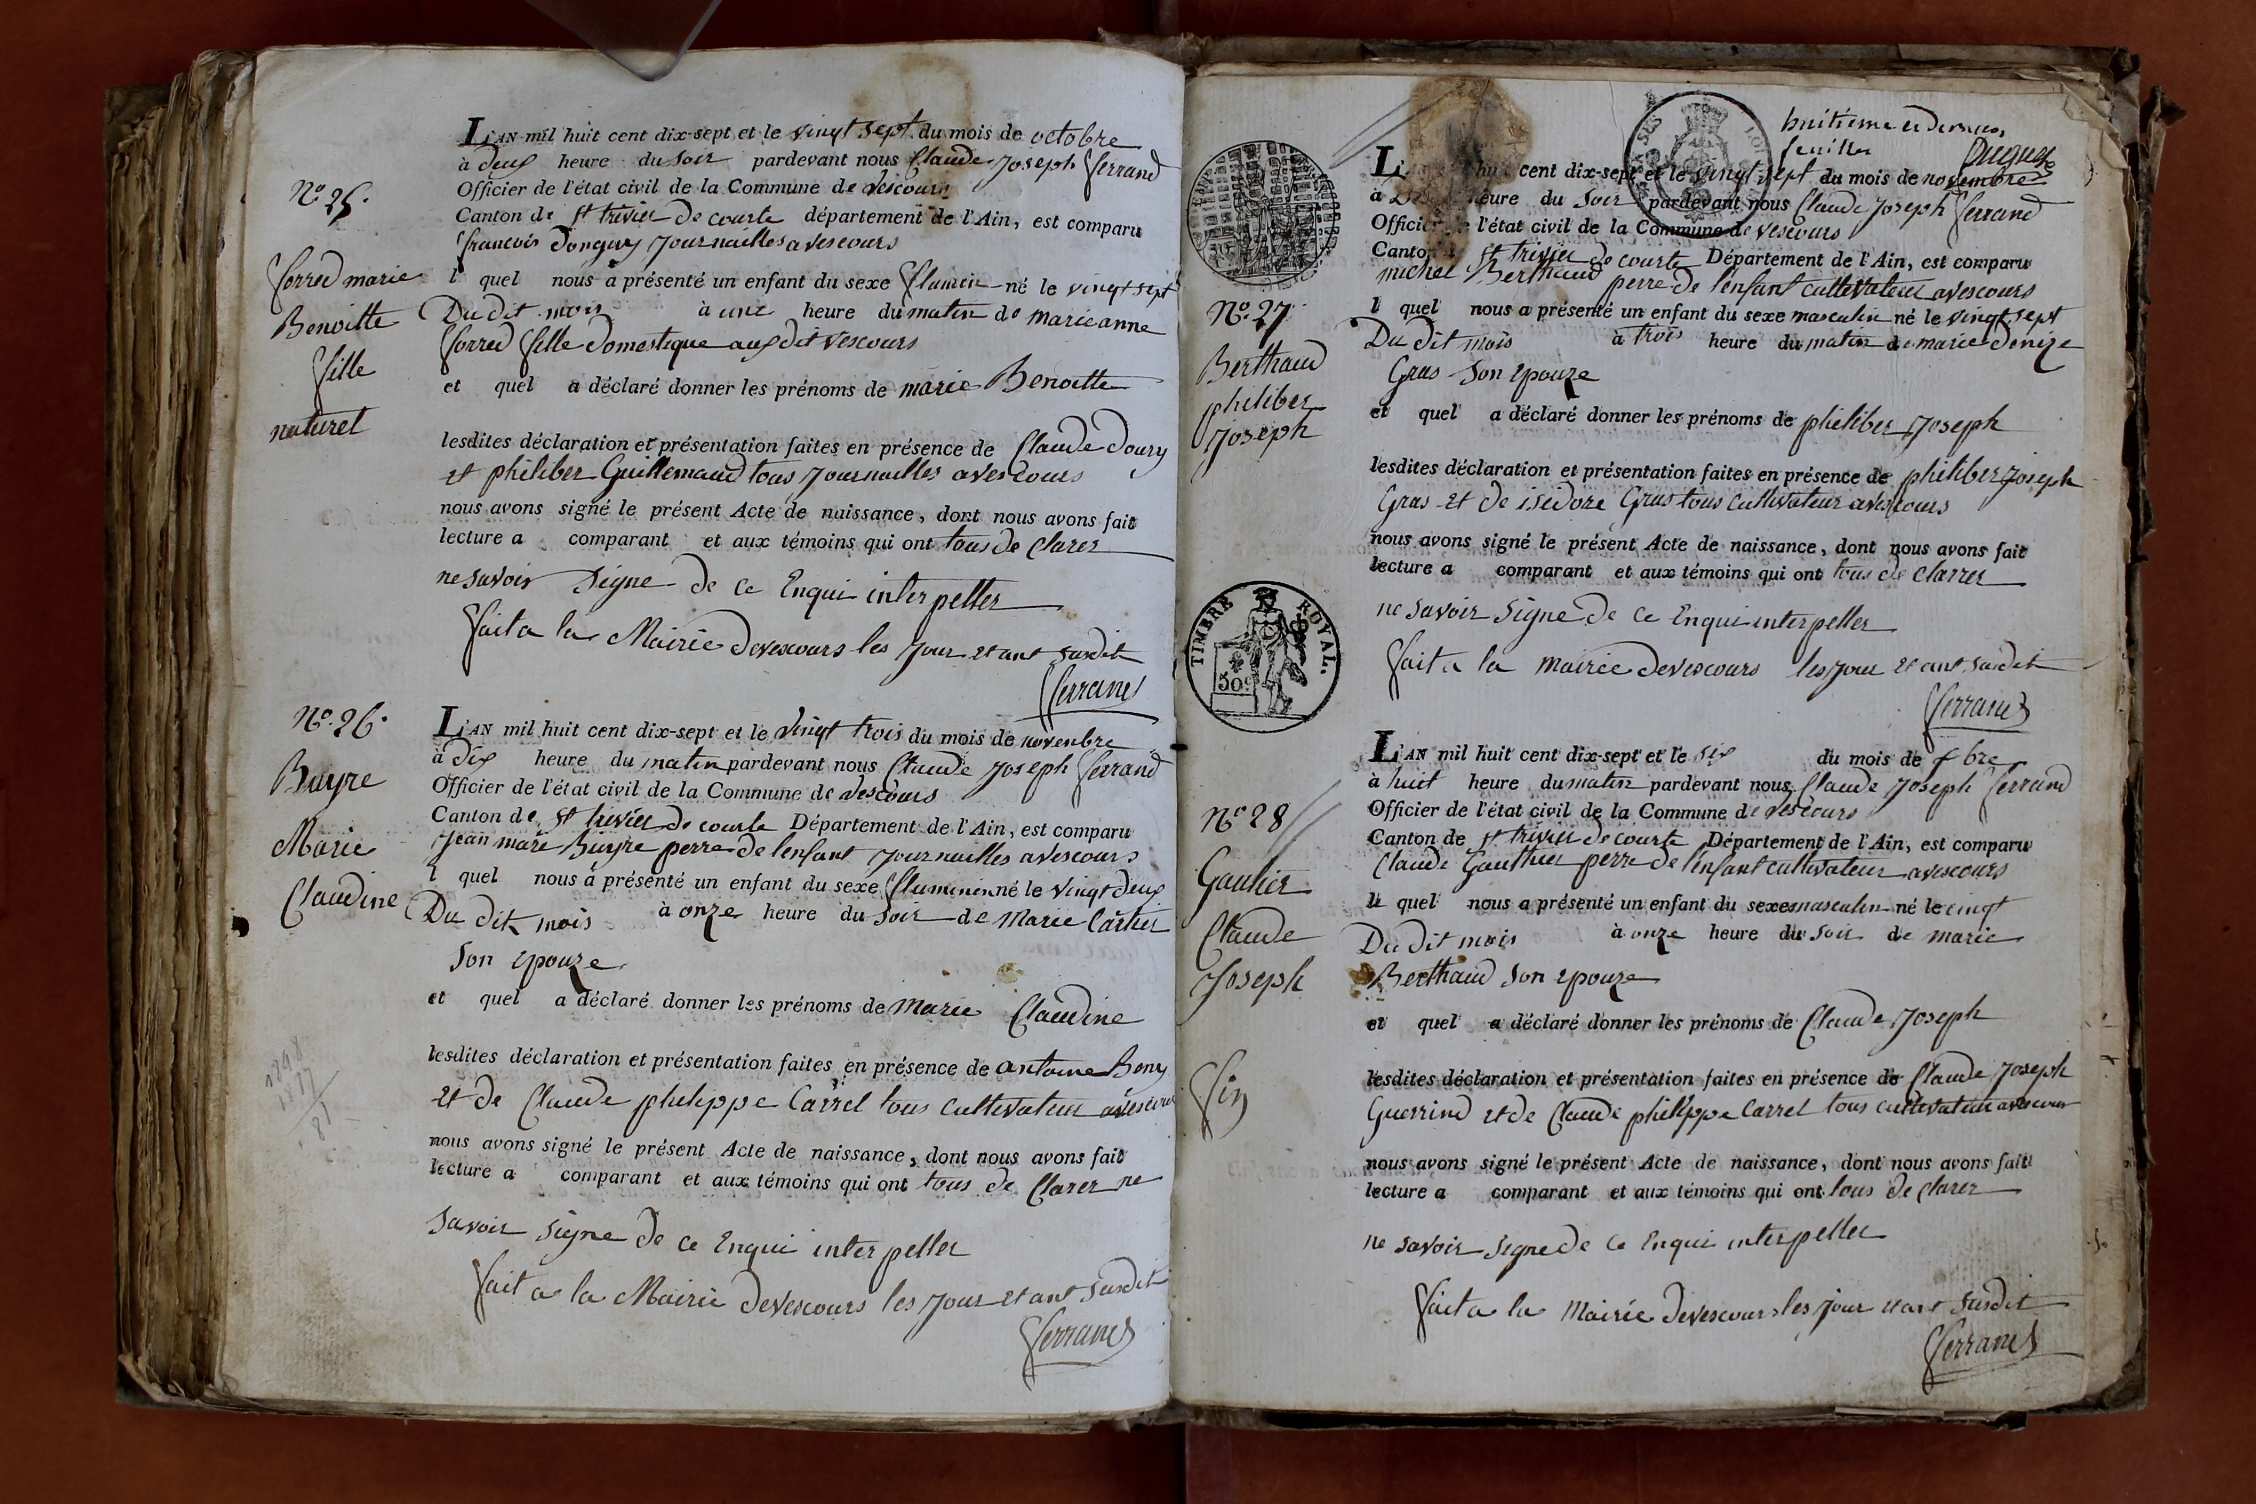 N.º 25.
Forred marie
Benoitte
fille
naturel
L'AN mil huit cent dix-sept et le vingt sept du mois de octobre
à deux heure du soir pardevant nous Claude Joseph ferrand
Officier de l'état civil de la Commune de vescours
Canton de st trivier de courte département de l'Ain, est comparu
francois donguy journailles a vescours
l quel nous a présenté un enfant du sexe né le vingt sept
Du dit mois à une heure du matin de marie anne
forred fille domestique aux dit vescours
et quel a déclaré donner les prénoms de marie Benoitte
lesdites déclaration et présentation faites en présence de Claude doury
et philiber Guillemaud tous journailles a vescours
nous avons signé le présent Acte de naissance, dont nous avons fait
lecture a comparant et aux témoins qui ont tous de clarer
ne savoir signe de ce Enqui interpeller
fait a la Mairie de vescours les jour et ant susdit
ferrand
N.º 26.
Buyre
Marie
Claudine
L'AN mil huit cent dix-sept et le vingt trois du mois de novenbre
à dix heure du matin pardevant nous Claude Joseph ferrand
Officier de l'état civil de la Commune de vescours
Canton de st trivier de courte Département de l'Ain, est comparu
Jean marie Buyre perre de lenfant journailles a vescours
l quel nous a présenté un enfant du sexe né le vingt deux
Du dit mois à onze heure du soir de Marie Cartier
Son epouze
et quel a déclaré donner les prénoms de Marie Claudine
lesdites déclaration et présentation faites en présence de antoine Bony
et de Claude philippe Carrel tous cultivateur a vescours
nous avons signé le présent Acte de naissance, dont nous avons fait
lecture a comparant et aux témoins qui ont tous de clarer ne
savoir signe de ce Enqui interpeller
fait a la Mairie de vescours les jour et ant susdit
ferrand
huitieme et dernier
feuillet
N.º 27
Berthaud
philiber
Joseph
TIMBRE ROYAL.
50
cent dix-sept et le vingt sept du mois de novembre
à heure du soir pardevant nous Claude Joseph ferrand
Officier l'état civil de la Commune de vescours
Canton st trivier de courte Département de l'Ain, est comparu
michel Berthaud perre de lenfant cultevateur a vescours
l quel nous a présenté un enfant du sexe masculin né le vingt sept
Du dit mois à trois heure du matin de marie denize
Gras son epouze
et quel a déclaré donner les prénoms de philiber Joseph
lesdites déclaration et présentation faites en présence de philiber Joseph
Gras et de isedore Gras tous cultivateur a vescours
nous avons signé le présent Acte de naissance, dont nous avons fait
lecture a comparant et aux témoins qui ont tous de clarrer
ne savoir signe de ce Enqui interpeller
fait a la mairie de vescours les jour et ant susdit
ferrand
N.º 28
Gautier
Claude
Joseph
fin
L'AN mil huit cent dix-sept et le six du mois de xbre
à huit heure du matin pardevant nous Claude Joseph ferrand
Officier de l'état civil de la Commune de vescours
Canton de st trivier de courte Département de l'Ain, est comparu
Claude Gauthier perre de lenfant cultivateur a vescours
le quel nous a présenté un enfant du sexe masculin né le cinqt
Du dit mois à onze heure du soir de marie
Berthaud son epouze
et quel a déclaré donner les prénoms de Claude Joseph
lesdites déclaration et présentation faites en présence de Claude Joseph
Guerrind et de Claude philippe Carrel tous cultivateur a vescours
nous avons signé le présent Acte de naissance, dont nous avons fait
lecture a comparant et aux témoins qui ont tous de clarer
ne savoir signe de ce Enqui interpeller
fait a la Mairie de vescours les jour et ant susdit
ferrand